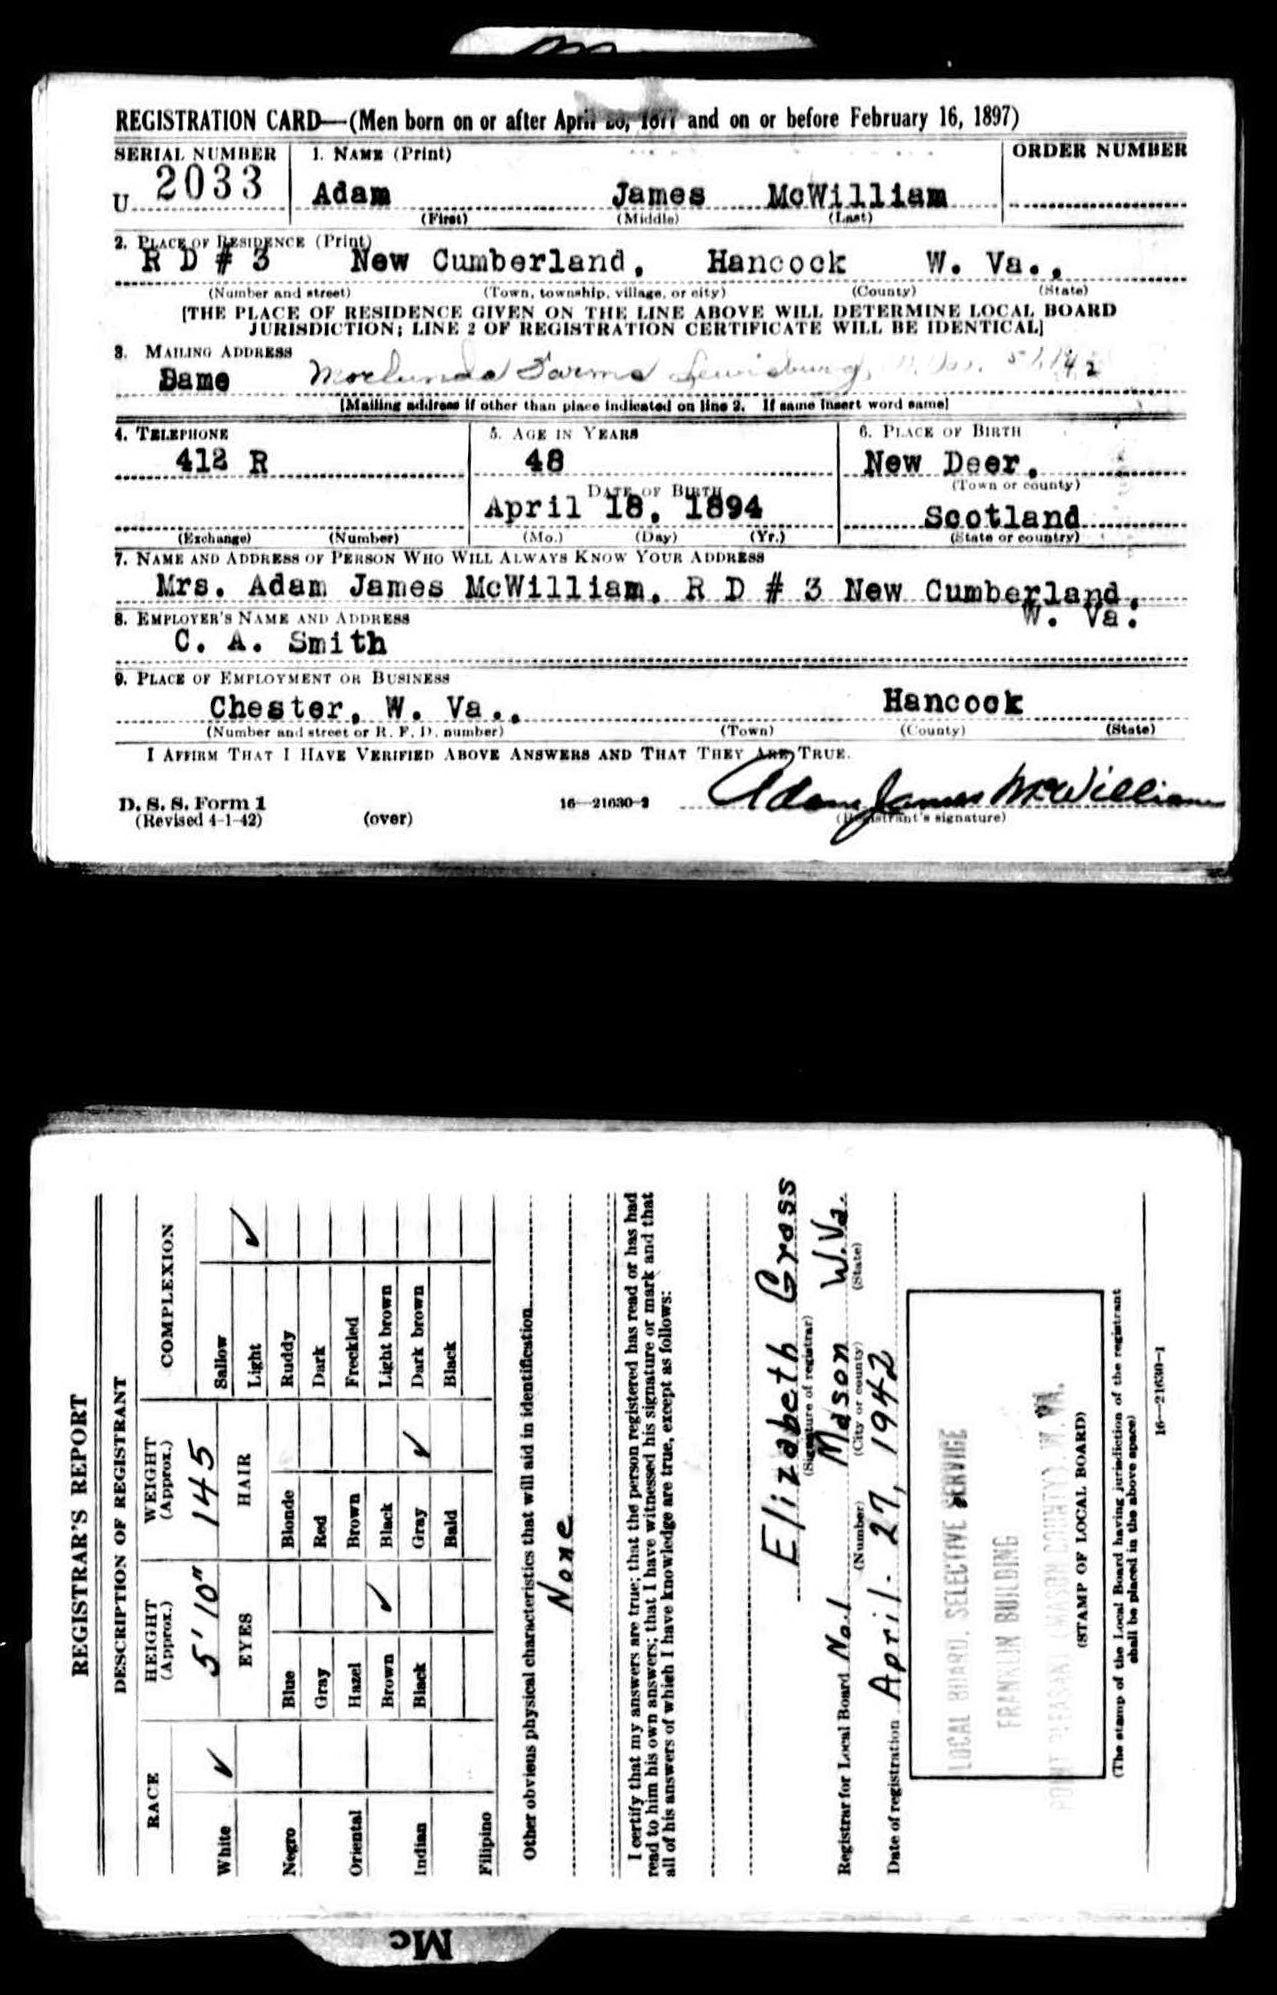 REGISTRATION CARD—(Men born on or after April 28, 1877 and on or before February 16, 1897)
SERIAL NUMBER 1. NAME (Print) ORDER NUMBER
U 2033 Adam James McWilliam
(First) (Middle) (Last)
2. PLACE OF RESIDENCE (Print)
R D # 3 New Cumberland, Hancock W. Va.,
(Number and street) (Town, township, village, or city) (County) (State)
[THE PLACE OF RESIDENCE GIVEN ON THE LINE ABOVE WILL DETERMINE LOCAL BOARD
JURISDICTION; LINE 2 OF REGISTRATION CERTIFICATE WILL BE IDENTICAL]
3. MAILING ADDRESS
Same Morlunda Farms Lewisburg,
[Mailing address if other than place indicated on line 2. If same insert word same]
4. TELEPHONE 5. AGE IN YEARS 6. PLACE OF BIRTH
412 R 48 New Deer,
(Town or county)
DATE OF BIRTH
April 18, 1894 Scotland
(Exchange) (Number) (Mo.) (Day) (Yr.) (State or country)
7. NAME AND ADDRESS OF PERSON WHO WILL ALWAYS KNOW YOUR ADDRESS
Mrs. Adam James McWilliam, R D # 3 New Cumberland,
W. Va.
8. EMPLOYER'S NAME AND ADDRESS
C. A. Smith
9. PLACE OF EMPLOYMENT OR BUSINESS
Chester, W. Va., Hancock
(Number and street or R. F. D. number) (Town) (County) (State)
I AFFIRM THAT I HAVE VERIFIED ABOVE ANSWERS AND THAT THEY ARE TRUE.
D. S. S. Form 1 16—21630-2 Adam James McWilliam
(Revised 4-1-42) (over) (Registrant's signature)
REGISTRAR'S REPORT
DESCRIPTION OF REGISTRANT
RACE HEIGHT (Approx.) WEIGHT (Approx.) COMPLEXION
5' 10" 145
White ✓ EYES HAIR Sallow
Light ✓
Negro Blue Blonde Ruddy
Gray Red Dark
Oriental Hazel Brown Freckled
Brown ✓ Black Light brown
Indian Black Gray ✓ Dark brown
Bald Black
Filipino
Other obvious physical characteristics that will aid in identification
None
I certify that my answers are true; that the person registered has read or has had
read to him his own answers; that I have witnessed his signature or mark and that
all of his answers of which I have knowledge are true, except as follows:
Elizabeth Gross
(Signature of registrar)
Registrar for Local Board No. 1 Mason W. Va.
(Number) (City or county) (State)
Date of registration April - 27, 1942
LOCAL BOARD, SELECTIVE SERVICE
FRANKLIN BUILDING
POINT PLEASANT (MASON COUNTY), W. VA.
(STAMP OF LOCAL BOARD)
(The stamp of the Local Board having jurisdiction of the registrant
shall be placed in the above space)
16—21630-1
Mc